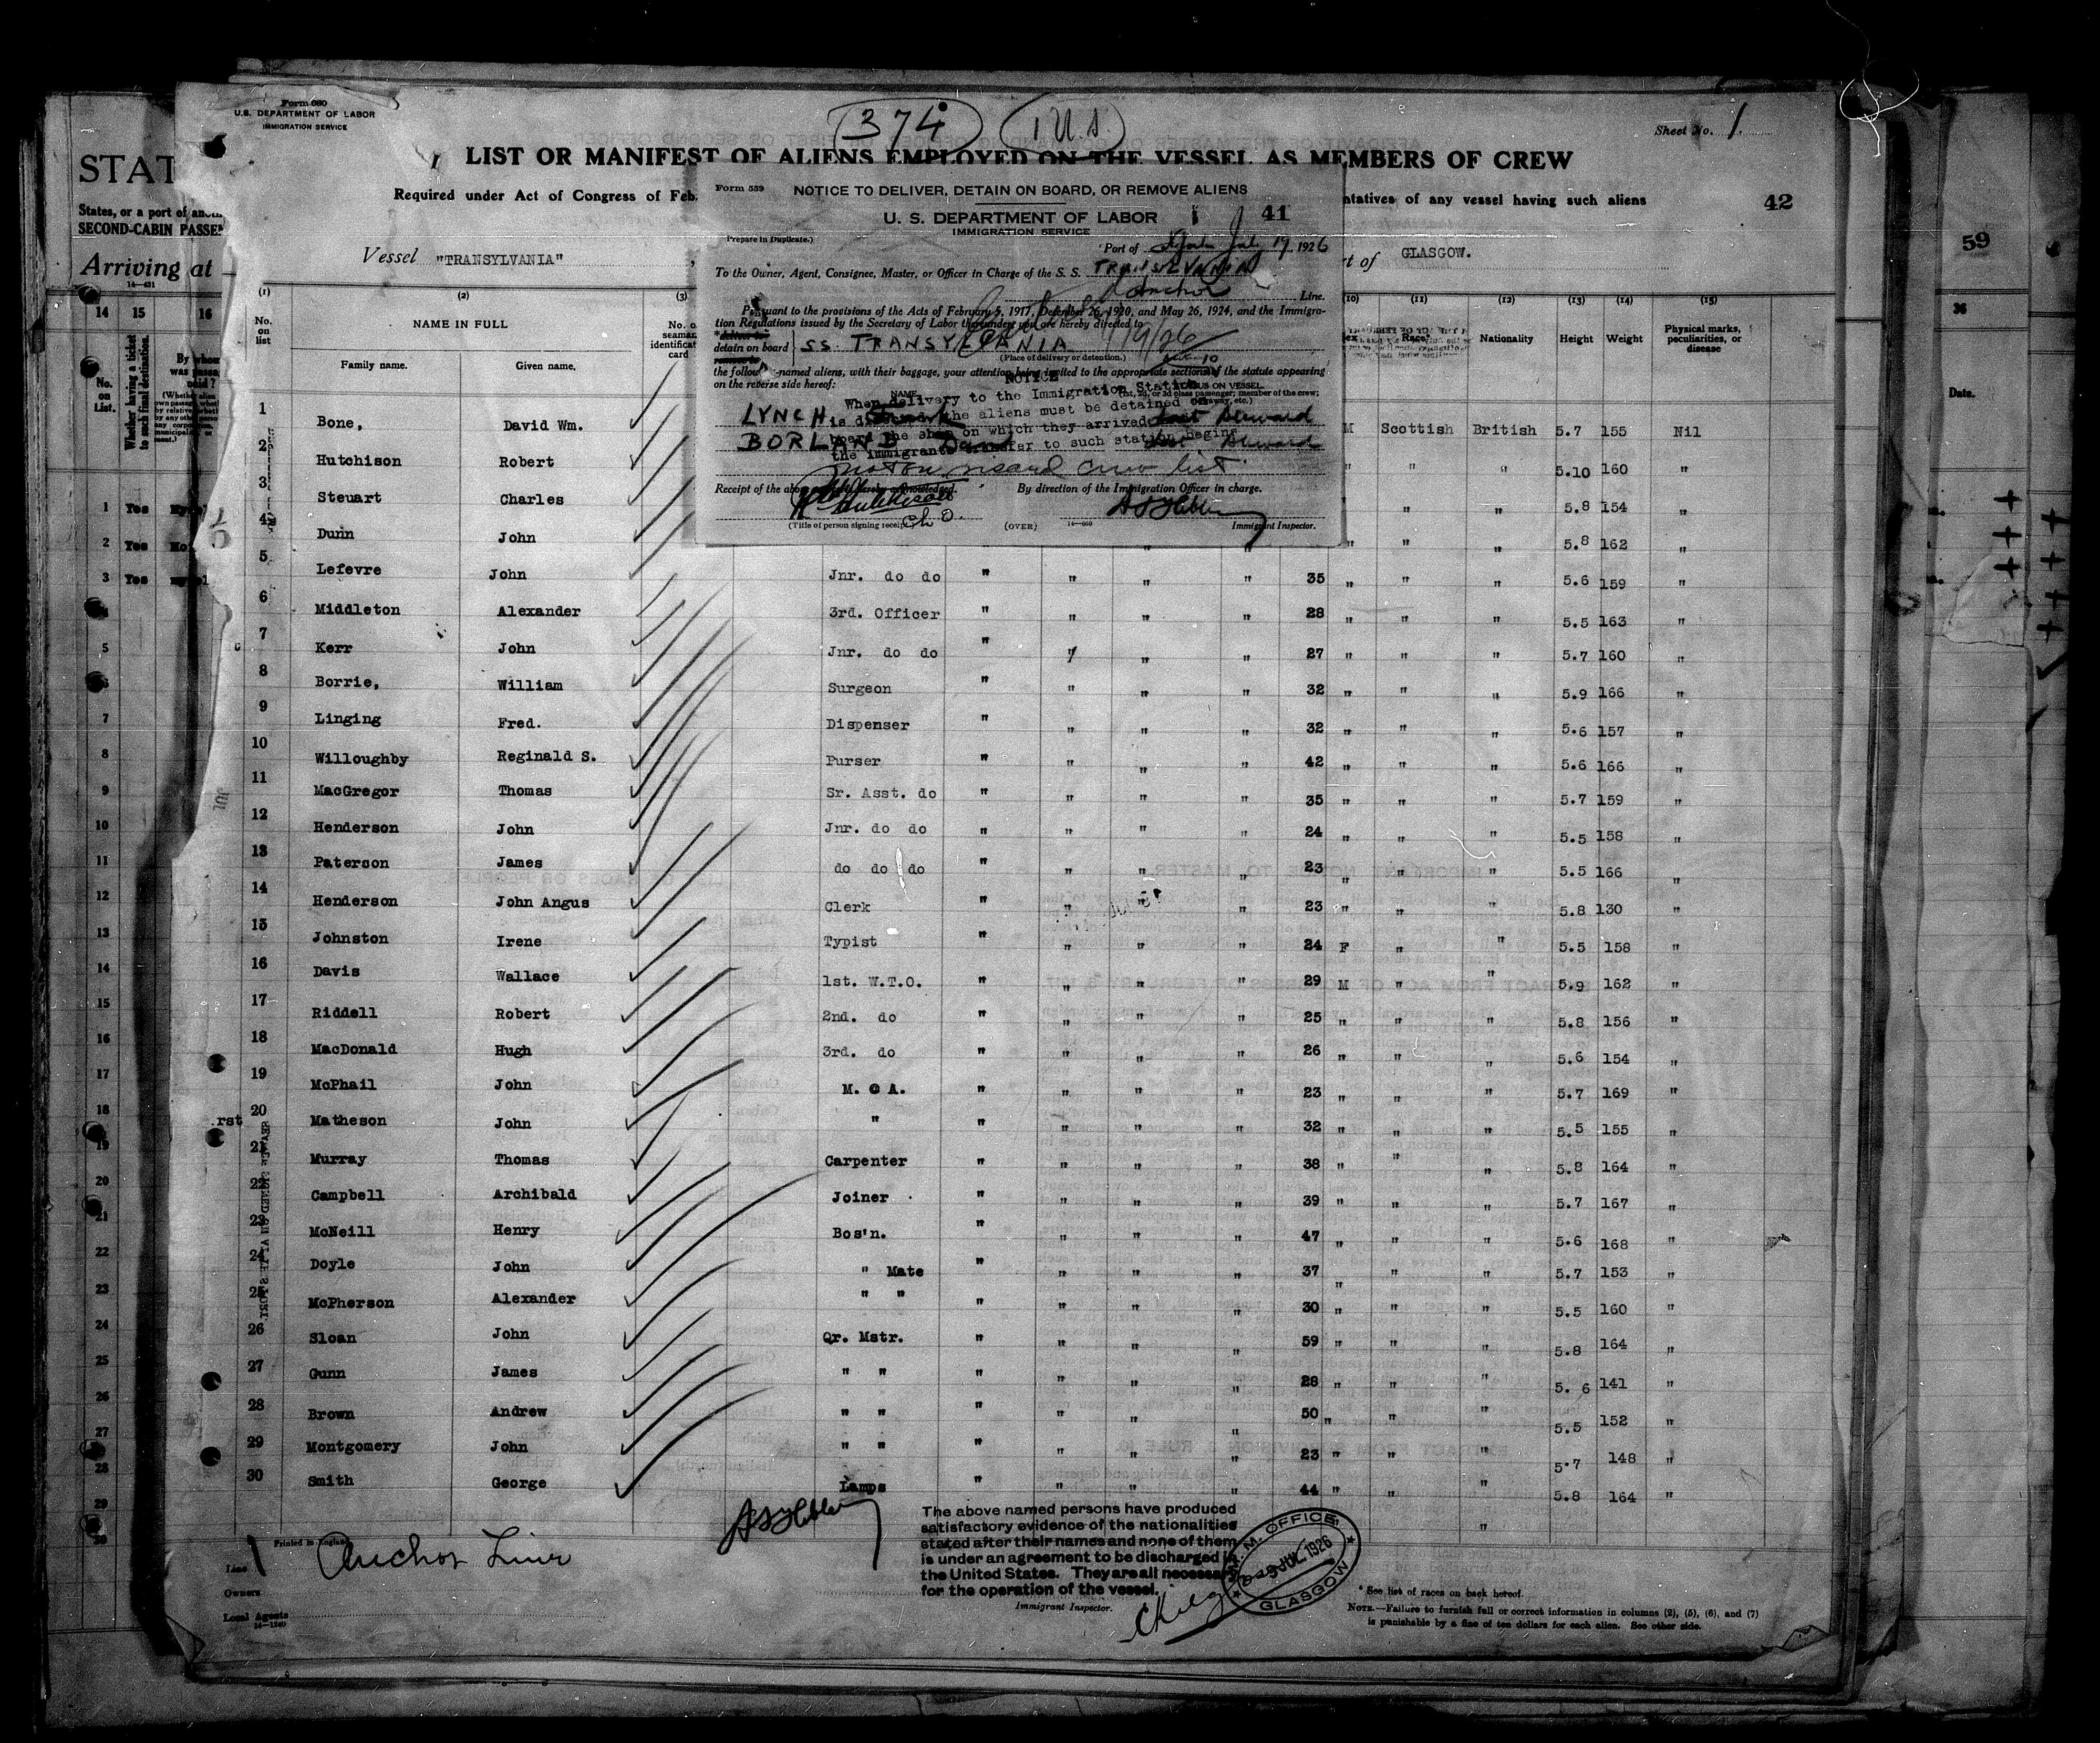 Form 680
U.S. DEPARTMENT OF LABOR
IMMIGRATION SERVICE
374
1 U.S.
Sheet No. 1
LIST OR MANIFEST OF ALIENS EMPLOYED ON THE VESSEL AS MEMBERS OF CREW
Required under Act of Congress of Feb.
ntatives of any vessel having such aliens
42
Vessel "TRANSYLVANIA"
rt of GLASGOW.
STAT
States, or a port of
SECOND-CABIN PASSE
Arriving at
14—431
14 15 16
No. on List.
Whether having a ticket to such final destination.
By whom was passage paid?
59
36
Date.
Form 559
NOTICE TO DELIVER, DETAIN ON BOARD, OR REMOVE ALIENS
U. S. DEPARTMENT OF LABOR
41
IMMIGRATION SERVICE
Prepare in Duplicate.)
Port of July 19, 1926
To the Owner, Agent, Consignee, Master, or Officer in Charge of the S. S. TRANSYLVANIA
Anchor Line.
Pursuant to the provisions of the Acts of February 5, 1917, December 26, 1920, and May 26, 1924, and the Immigra-
tion Regulations issued by the Secretary of Labor thereunder you are hereby directed to
detain on board SS. TRANSYLVANIA
(Place of delivery or detention.)
the follow-named aliens, with their baggage, your attention being invited to the appropriate sections of the statute appearing
on the reverse side hereof:
NOTICE
When delivery to the Immigration Station
the aliens must be detained on
board the ship on which they arrived
the immigrants transfer to such station begins
LYNCH Steward
BORLAND Steward
not on visaed crew list
Receipt of the above hereby acknowledged.
By direction of the Immigration Officer in charge.
Ch O.
(Title of person signing receipt)
(OVER)
14—660
Immigrant Inspector.
(1) (2) (3) (10) (11) (12) (13) (14) (15)
No. on list
NAME IN FULL
Family name. Given name.
No. of seaman identificat card
Race Nationality Height Weight Physical marks, peculiarities, or disease
1 Bone, David Wm. M Scottish British 5.7 155 Nil
2 Hutchison Robert " " " 5.10 160 "
3 Steuart Charles " " 5.8 154 "
4 Dunn John " " " 5.8 162 "
5 Lefevre John Jnr. do do " " " " 35 " " " 5.6 159 "
6 Middleton Alexander 3rd. Officer " " " " 28 " " " 5.5 163 "
7 Kerr John Jnr. do do " " " " 27 " " " 5.7 160 "
8 Borrie, William Surgeon " " " " 32 " " " 5.9 166 "
9 Linging Fred. Dispenser " " " " 32 " " " 5.6 157 "
10 Willoughby Reginald S. Purser " " " " 42 " " " 5.6 166 "
11 MacGregor Thomas Sr. Asst. do " " " " 35 " " " 5.7 159 "
12 Henderson John Jnr. do do " " " " 24 " " " 5.5 158 "
13 Paterson James do do do " " " " 23 " " " 5.5 166 "
14 Henderson John Angus Clerk " " " " 23 " " " 5.8 130 "
15 Johnston Irene Typist " " " " 24 F " " 5.5 158 "
16 Davis Wallace 1st. W.T.O. " " " " 29 M " " 5.9 162 "
17 Riddell Robert 2nd. do " " " " 25 " " " 5.8 156 "
18 MacDonald Hugh 3rd. do " " " " 26 " " " 5.6 154 "
19 McPhail John M. O A. " " " " 23 " " " 5.7 169 "
20 Matheson John " " " " " 32 " " " 5.5 155 "
21 Murray Thomas Carpenter " " " " 38 " " " 5.8 164 "
22 Campbell Archibald Joiner " " " " 39 " " " 5.7 167 "
23 McNeill Henry Bos'n. " " " " 47 " " " 5.6 168 "
24 Doyle John " Mate " " " " 37 " " " 5.7 153 "
25 McPherson Alexander " " " " " " 30 " " " 5.5 160 "
26 Sloan John Qr. Mstr. " " " " 59 " " " 5.8 164 "
27 Gunn James " " " " " " 28 " " " 5. 6 141 "
28 Brown Andrew " " " " " " 50 " " " 5.5 152 "
29 Montgomery John " " " " " " 23 " " " 5.7 148 "
30 Smith George Lamps " " " " 44 " " " 5.8 164 "
Printed in England
Line Anchor Line
Owners
Local Agents
14—1240
The above named persons have produced
satisfactory evidence of the nationalities
stated after their names and none of them
is under an agreement to be discharged in
the United States. They are all necessary
for the operation of the vessel.
Immigrant Inspector.
M. M. OFFICE
9 JUL. 1926
GLASGOW
* See list of races on back hereof.
NOTE.—Failure to furnish full or correct information in columns (2), (5), (6), and (7)
is punishable by a fine of ten dollars for each alien. See other side.